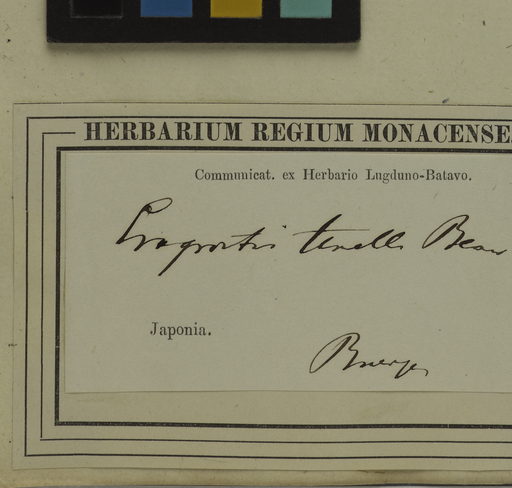 HERBARIUM REGIUM MONACENSE.
Communicat. ex Herbario Lugduno-Batavo.
Eragrostis tenella Beauv
Japonia.
Buerger